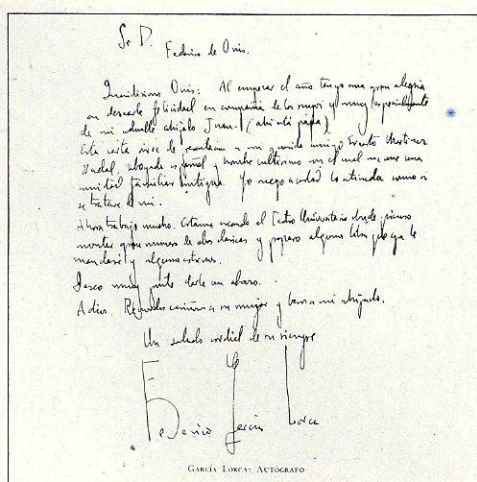 Sr D.
Federico de Onis.
Queridisimo Onis: Al empezar el año tengo una gran alegria
en desearle felicidad en compañia de los suyos y muy especialmente
de mi adorable ahijado Juan. (
Esta carta sirve de a mi querido amigo Ernesto Martinez
Nadal, abogado español y hombre cultisimo con el cual me une una
amistad familiar antigua. Yo ruego a usted lo atienda como si
se tratase de mi.
Ahora trabajo mucho. Estamos creando el Teatro Universitario donde pienso
montar gran numero de obras clasicas y preparo algunos libros que ya le
mandaré y algunas cosas.
Deseo muy pronto darle un abrazo.
Adios. Recuerdos cariñosos a su mujer y besos a mi ahijado.
Un saludo cordial de su siempre
Federico García Lorca
GARCÍA LORCA: AUTÓGRAFO